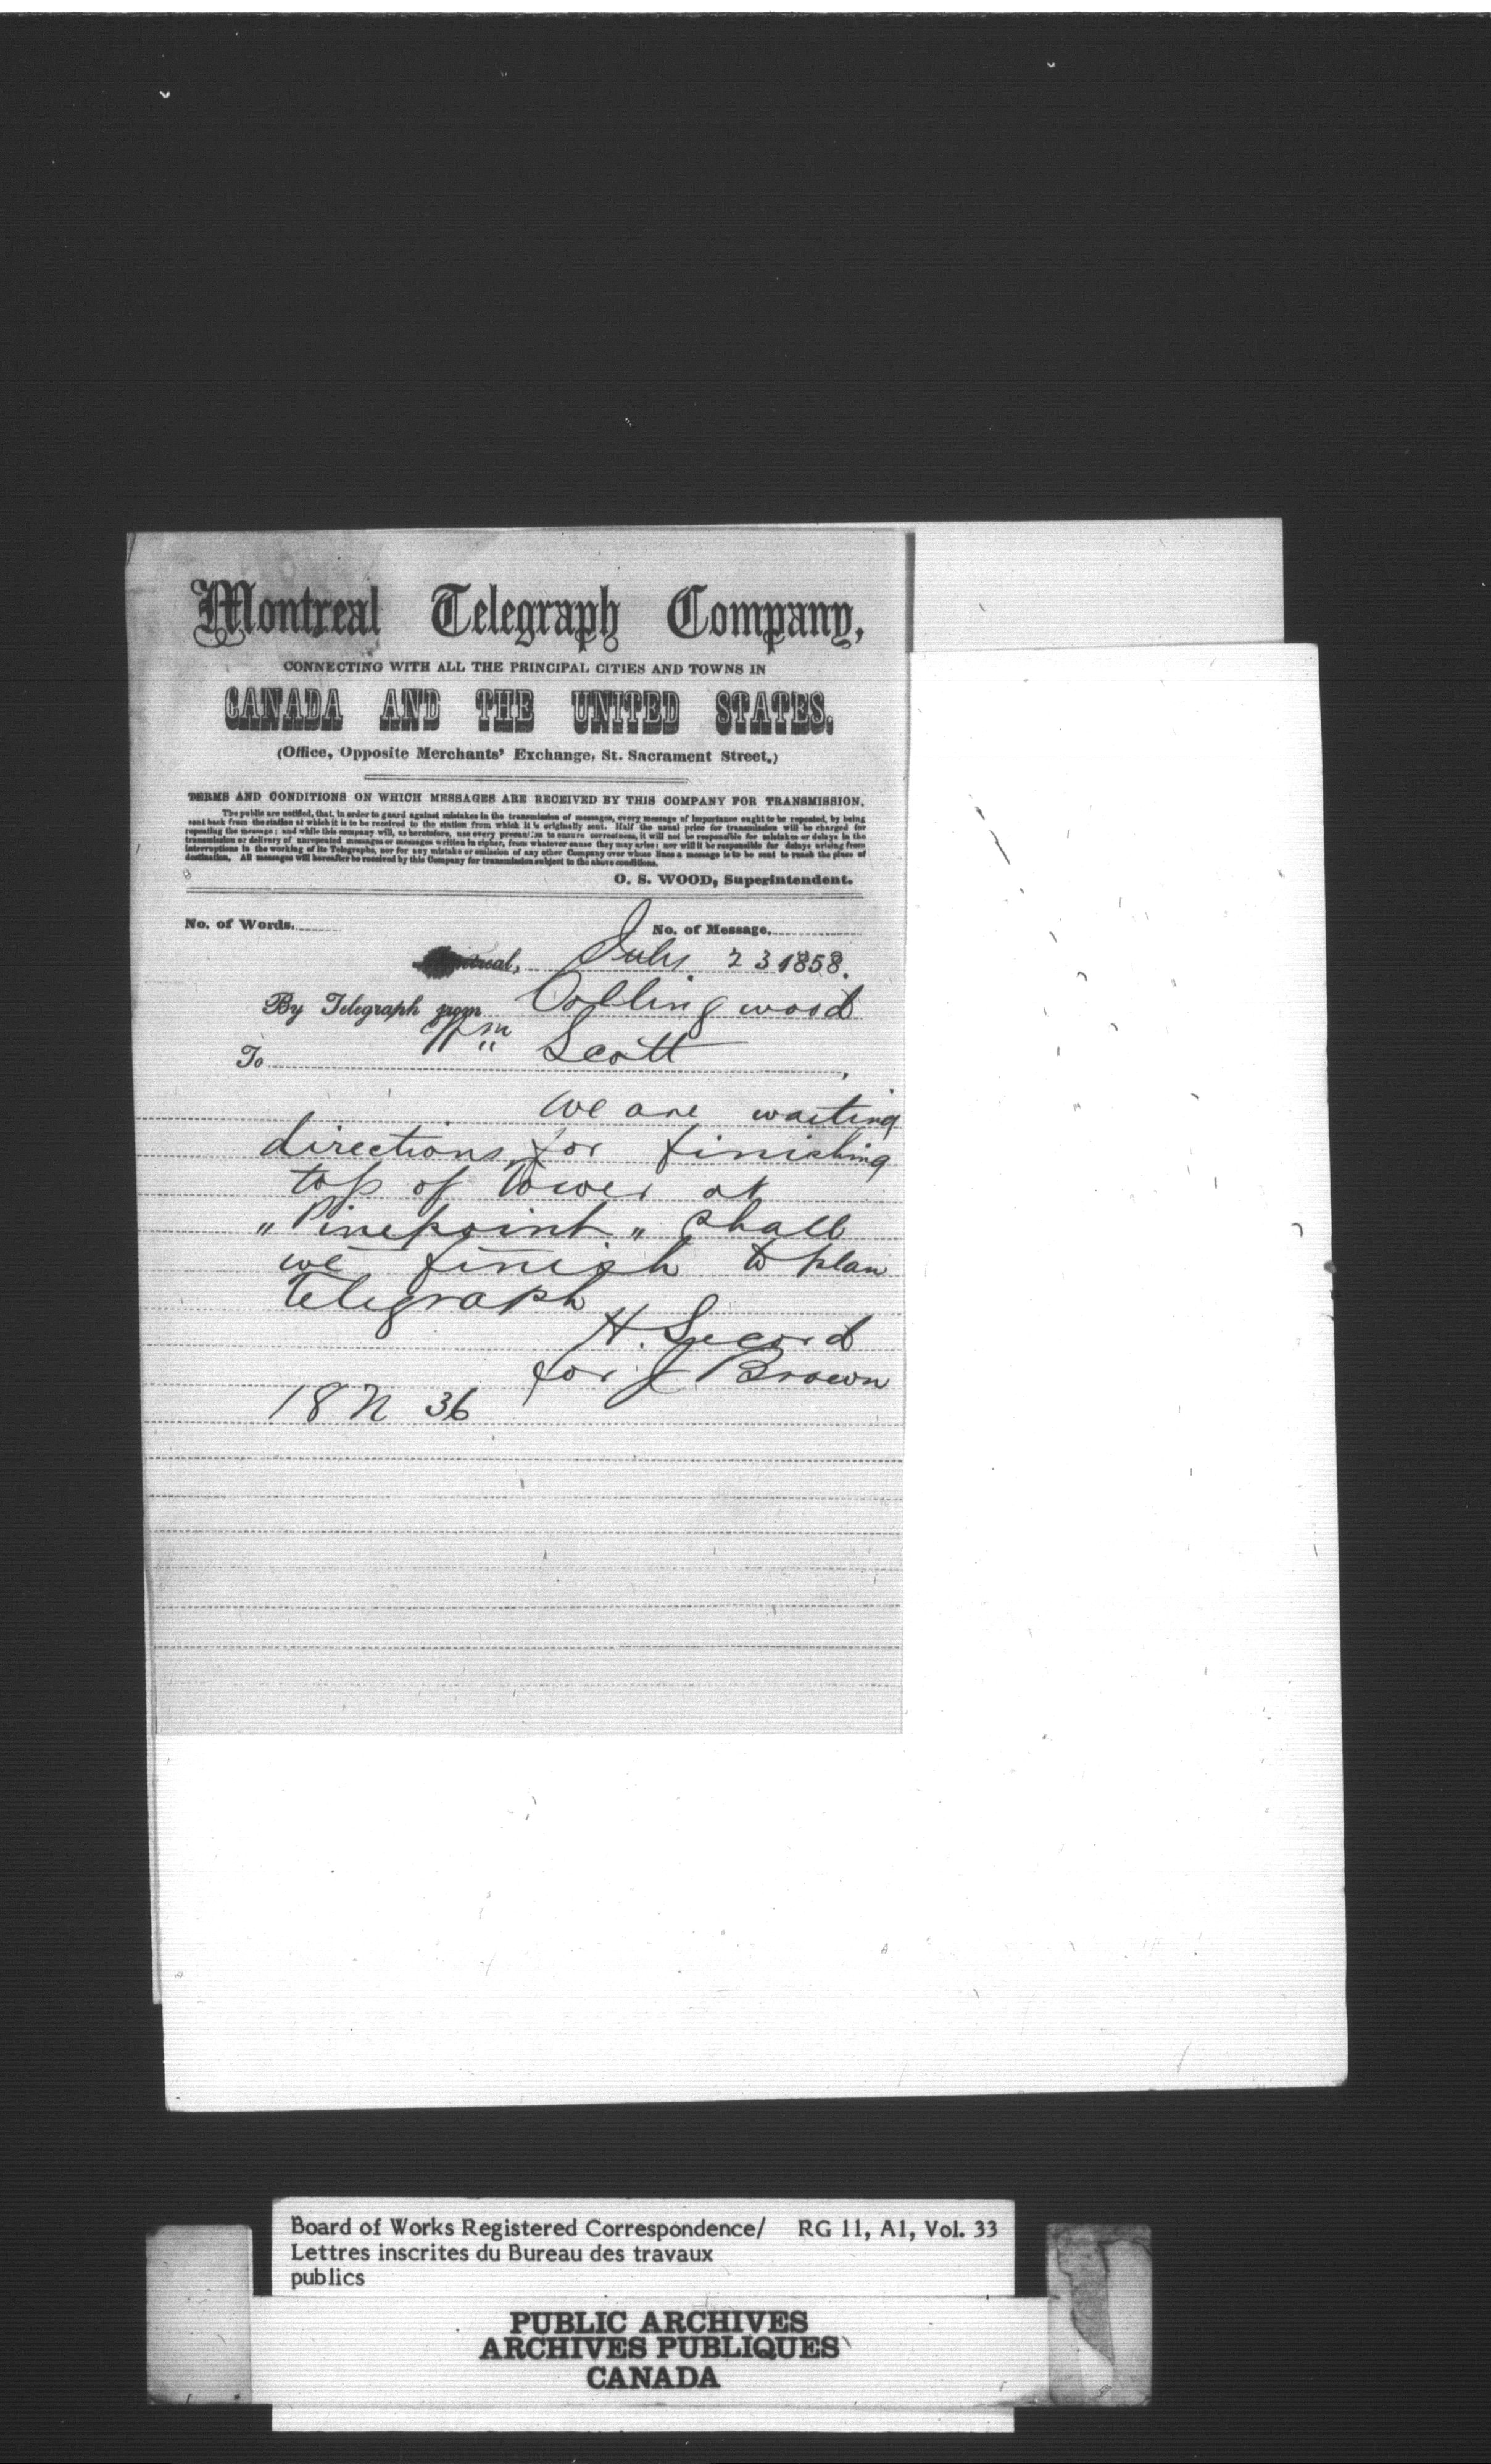 Montreal Telegraph Company,
CONNECTING WITH ALL THE PRINCIPAL CITIES AND TOWNS IN
CANADA AND THE UNITED STATES,
(Office, Opposite Merchants' Exchange, St. Sacrament Street.)
TERMS AND CONDITIONS ON WHICH MESSAGES ARE RECEIVED BY THIS COMPANY FOR TRANSMISSION.
The public are notified, that, in order to guard against mistakes in the transmission of messages, every message of importance ought to be repeated, by being
sent back from the station at which it is to be received to the station from which it is originally sent. Half the usual price for transmission will be charged for
repeating the message; and while this company will, as heretofore, use every precaution to ensure correctness, it will not be responsible for mistakes or delays in the
transmission or delivery of unrepeated messages or messages written in cipher, from whatever cause they may arise; nor will it be responsible for delays arising from
interruptions in the working of its Telegraphs, nor for any mistake or omission of any other Company over whose lines a message is to be sent to reach the place of
destination. All messages will hereafter be received by this Company for transmission subject to the above conditions.
O. S. WOOD, Superintendent.
No. of Words. No. of Message.
Montreal, July 23 1858.
By Telegraph from Collingwood
To Wm Scott
We are waiting
directions for finishing
top of tower at
"Pinepoint" shall
we finish to plan
Telegraph
H. Secord
for J Brown
18 N 36
Board of Works Registered Correspondence/ RG 11, A1, Vol. 33
Lettres inscrites du Bureau des travaux
publics
PUBLIC ARCHIVES
ARCHIVES PUBLIQUES
CANADA